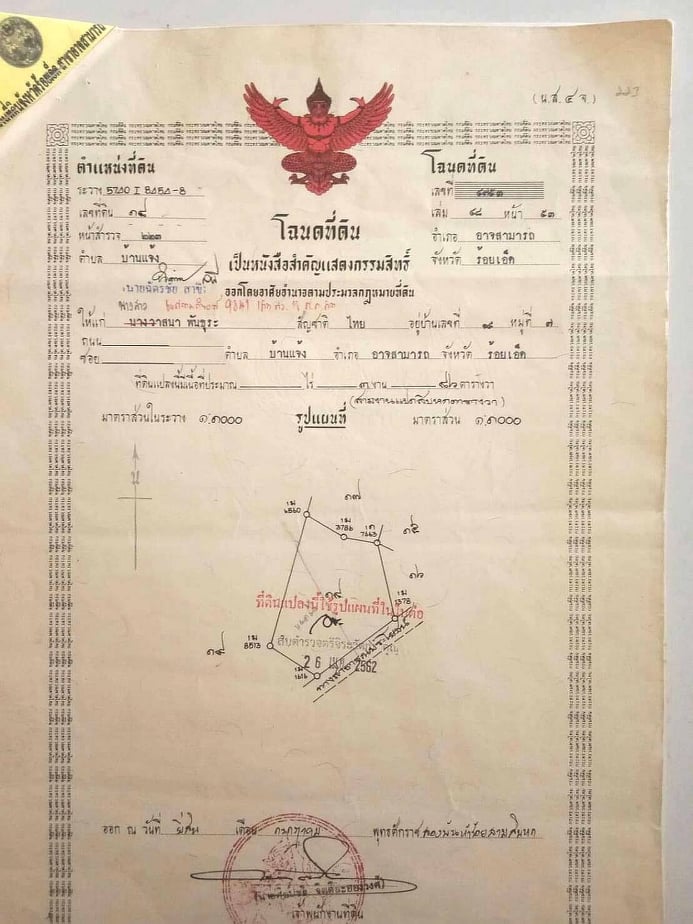 (น.ส. ๔ จ.)
223
ตำแหน่งที่ดิน
ระวาง 5740 I 8454-8
เลขที่ดิน ๑๘
หน้าสำรวจ ๒๒๓
ตำบล บ้านแจ้ง
โฉนดที่ดิน
เลขที่ ๔๗๕๓
เล่ม ๔๘ หน้า ๕๓
อำเภอ อาจสามารถ
จังหวัด ร้อยเอ็ด
โฉนดที่ดิน
เป็นหนังสือสำคัญแสดงกรรมสิทธิ์
ออกโดยอาศัยอำนาจตามประมวลกฎหมายที่ดิน
นายฉัตรชัย
ให้แก่ นางวาสนา พันธุระ สัญชาติ ไทย อยู่บ้านเลขที่ ๑๙ หมู่ที่ ๗
ถนน
ซอย ตำบล บ้านแจ้ง อำเภอ อาจสามารถ จังหวัด ร้อยเอ็ด
ที่ดินแปลงนี้มีเนื้อที่ประมาณ ไร่ ๓ งาน ๘๖ ตารางวา
(สามงานแปดสิบหกตารางวา)
มาตราส่วนในระวาง ๑:๑๐๐๐ รูปแผนที่ มาตราส่วน ๑:๑๐๐๐
น
๑๗
1ม
6560
1ม
3786
1ก
7663
๑๕
๑๖
๑๘
ที่ดินแปลงนี้ใช้รูปแผนที่ในใบต่อ
1378
สิบตำรวจตรี
๑๙
1ม
8513
26 2562
1ม
1616
ทางสาธารณประโยชน์
ออก ณ วันที่ ยี่สิบ เดือน กรกฎาคม พุทธศักราช สองพันห้าร้อยสามสิบหก
เจ้าพนักงานที่ดิน